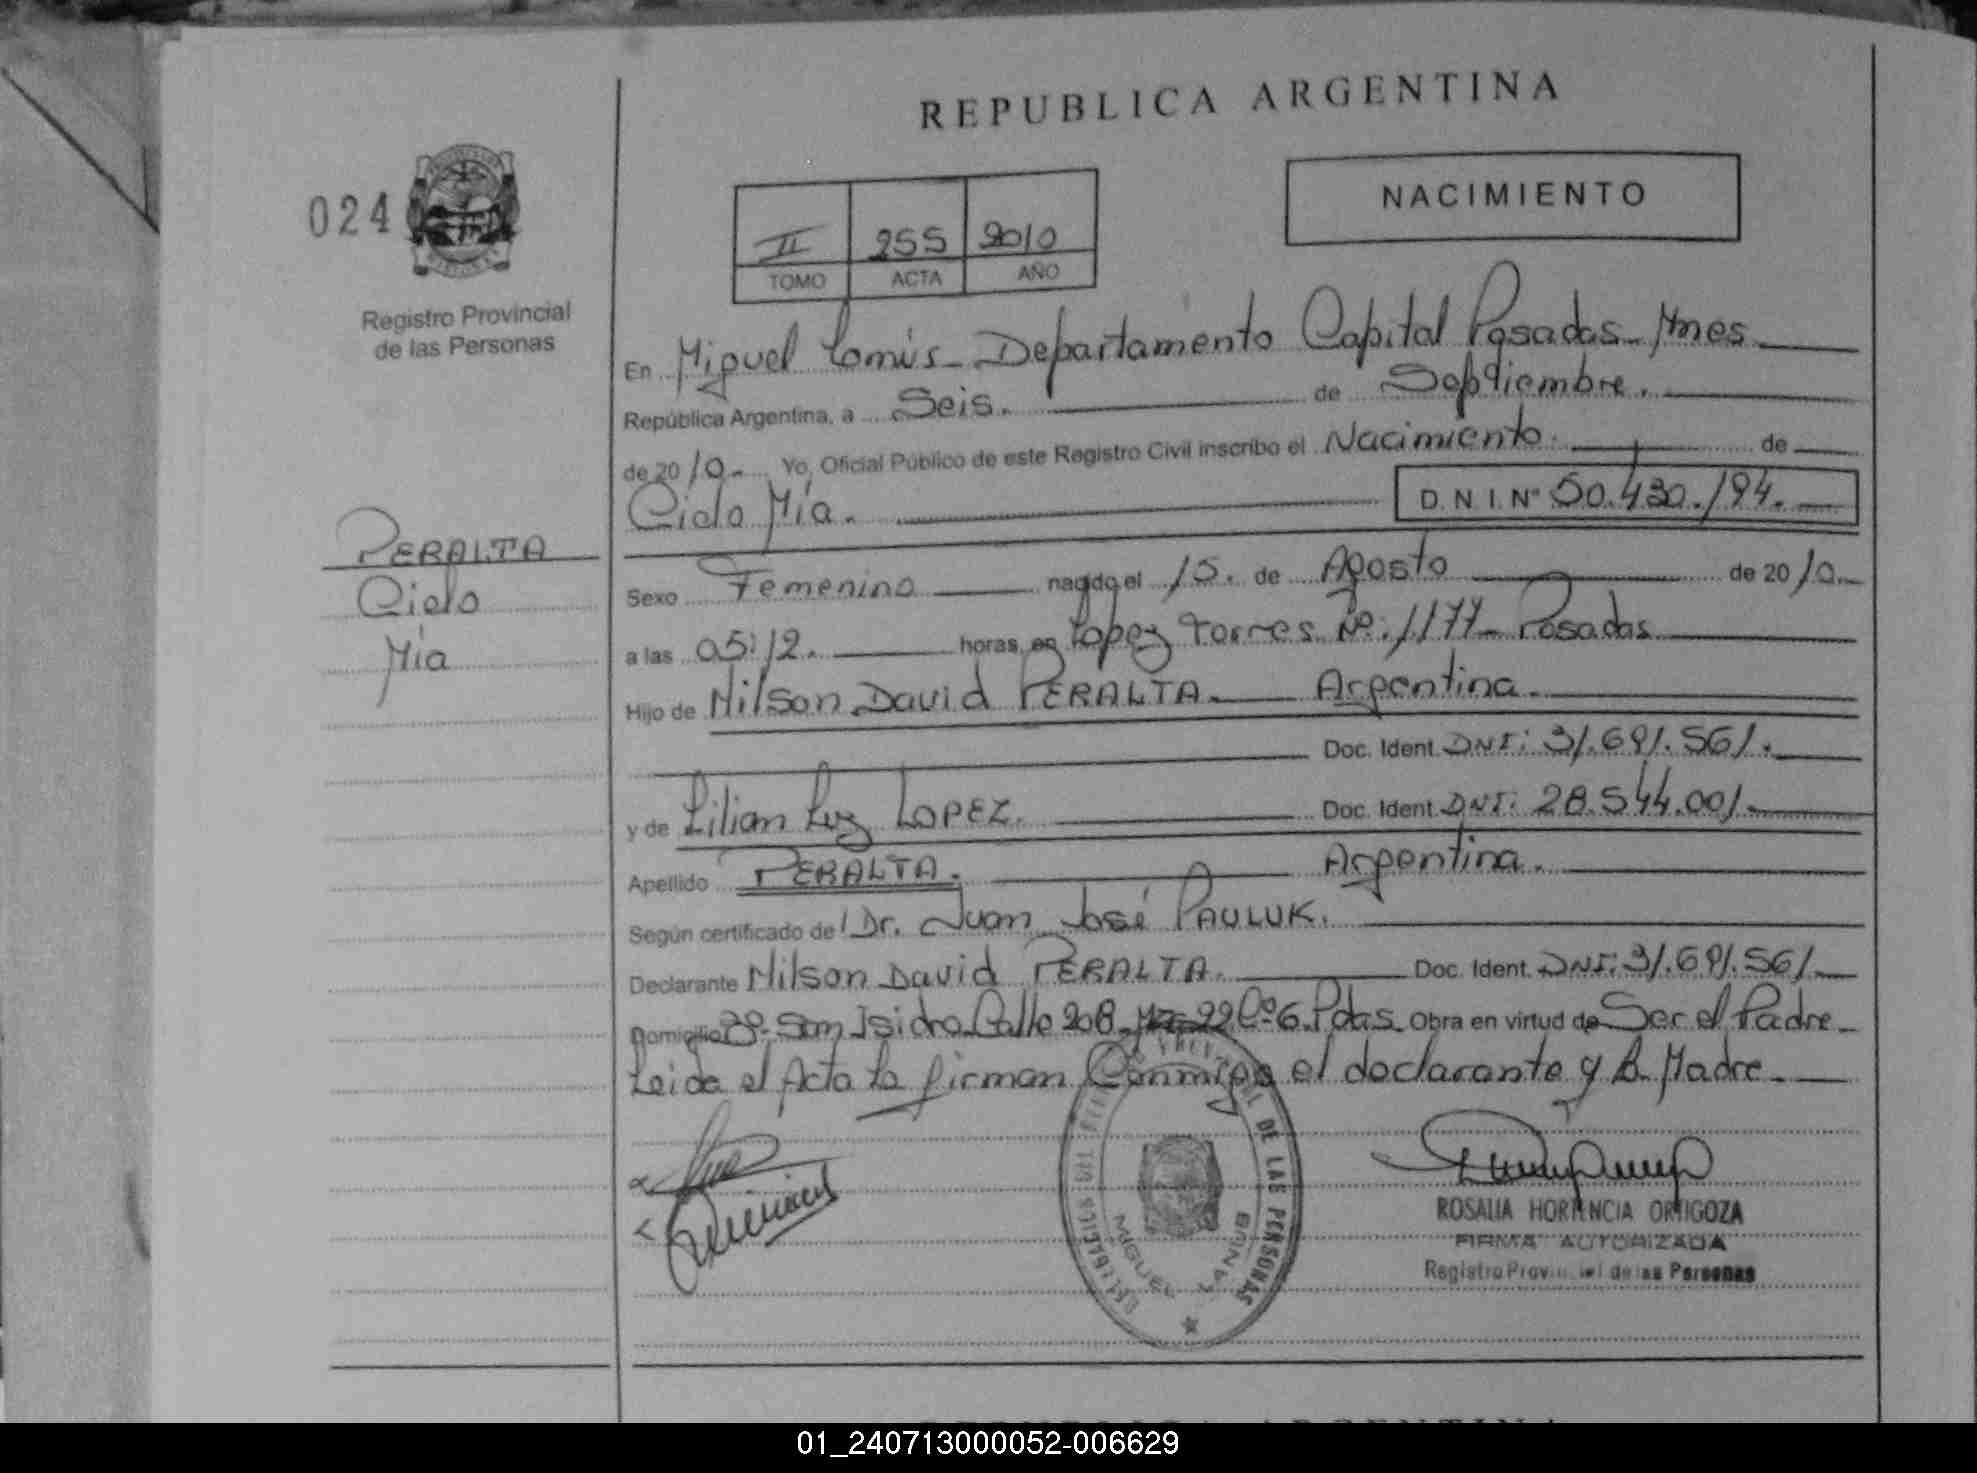 REPUBLICA ARGENTINA
NACIMIENTO
024
II 255 2010
TOMO ACTA AÑO
Registro Provincial
de las Personas
En Miguel Lanús - Departamento Capital Posadas - Mnes
República Argentina, a Seis. de Septiembre.
de 2010. Yo, Oficial Público de este Registro Civil inscribo el Nacimiento. de
Cielo Mía. D.N.I.Nº 50.430.194.
PERALTA
Cielo
Mía
Sexo Femenino nacido el 15. de Agosto de 2010.
a las 05:12. horas, en Lopez Torres Nº: 1177 - Posadas
Hijo de Nilson David PERALTA. Argentina.
Doc. Ident. DNI: 31.691.561.
y de Lilian Luz LOPEZ. Doc. Ident. DNI: 28.544.001.
Apellido PERALTA. Argentina.
Según certificado del Dr. Juan José PAULUK.
Declarante Nilson David PERALTA. Doc. Ident. DNI: 31.691.561
Domicilio Bº San Isidro Calle 208 Mz 22 Cº 6. Pdas. Obra en virtud de Ser el Padre
Leida el Acta la firman Conmigo el declarante y la Madre
DE LAS PERSONAS
MIGUEL LANUS
ROSALIA HORTENCIA ORTIGOZA
FIRMA AUTORIZADA
Registro Provincial de las Personas
REPUBLICA ARGENTINA
01_240713000052-006629